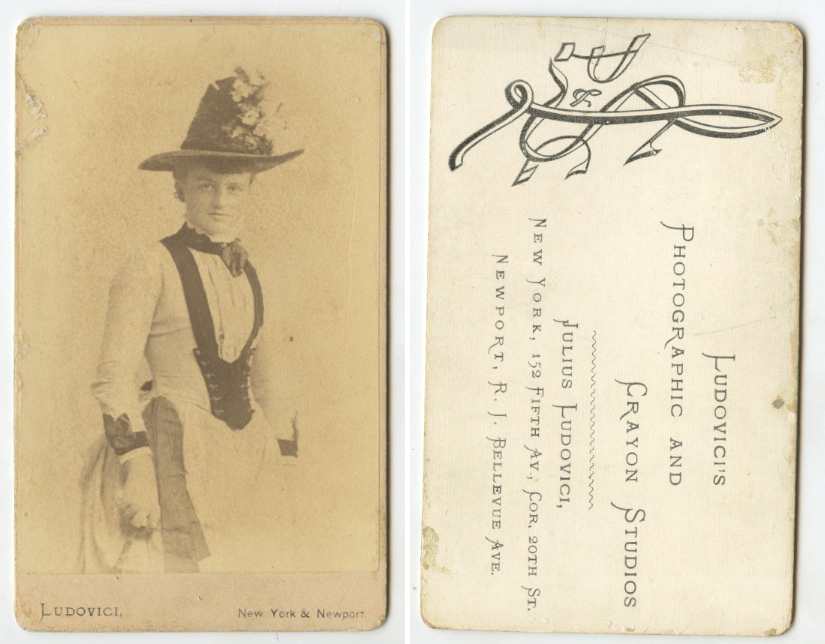 LUDOVICI,
New York & Newport.
LUDOVICI'S
PHOTOGRAPHIC AND
CRAYON STUDIOS
JULIUS LUDOVICI,
NEW YORK, 152 FIFTH AV., COR. 20TH ST.
NEWPORT, R. I. BELLEVUE AVE.